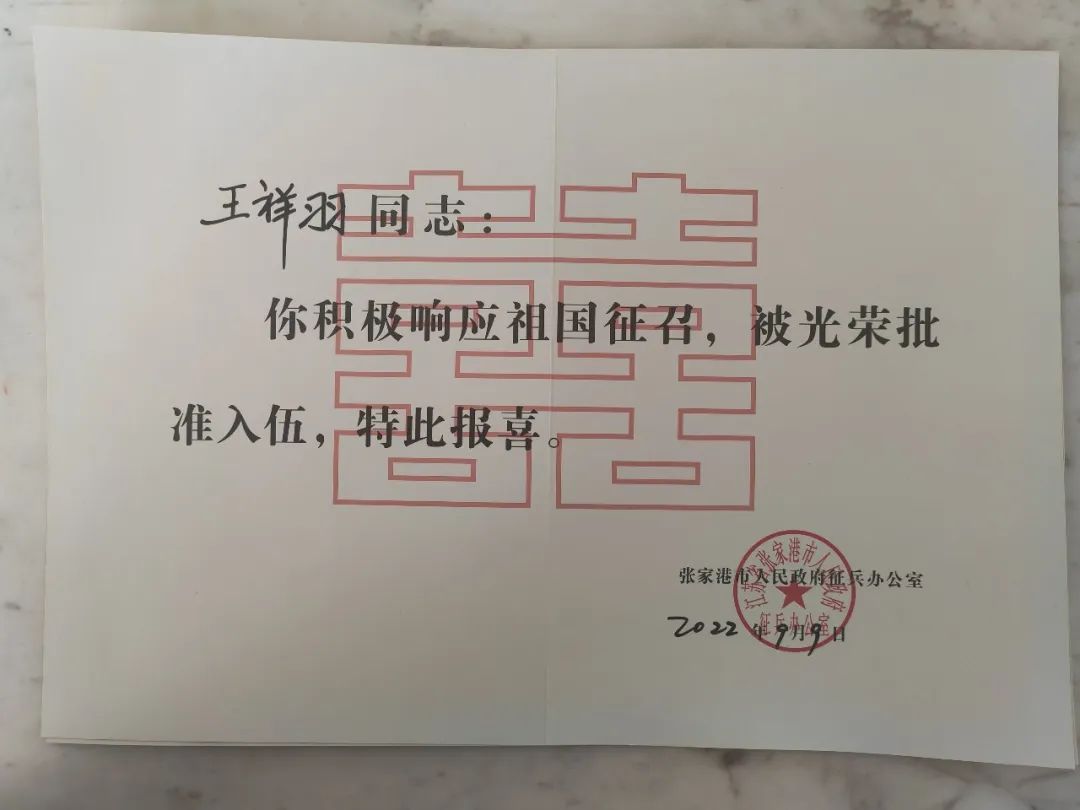 王祥羽同志：
你积极响应祖国征召，被光荣批
准入伍，特此报喜。
张家港市人民政府征兵办公室
2022年9月9日
江苏省张家港市人民政府
征兵办公室